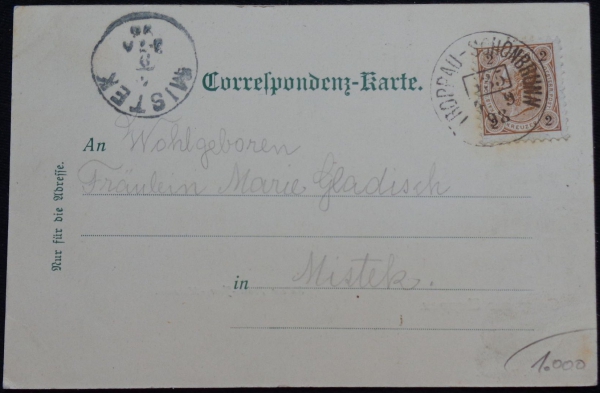 MISTEK
Correspondenz-Karte.
TROPPAU-SCHÖNBRUNN
2 2
KREUZER
An Wohlgeboren
Fräulein Marie Gladisch
in Mistek.
Nur für die Adresse.
1.000